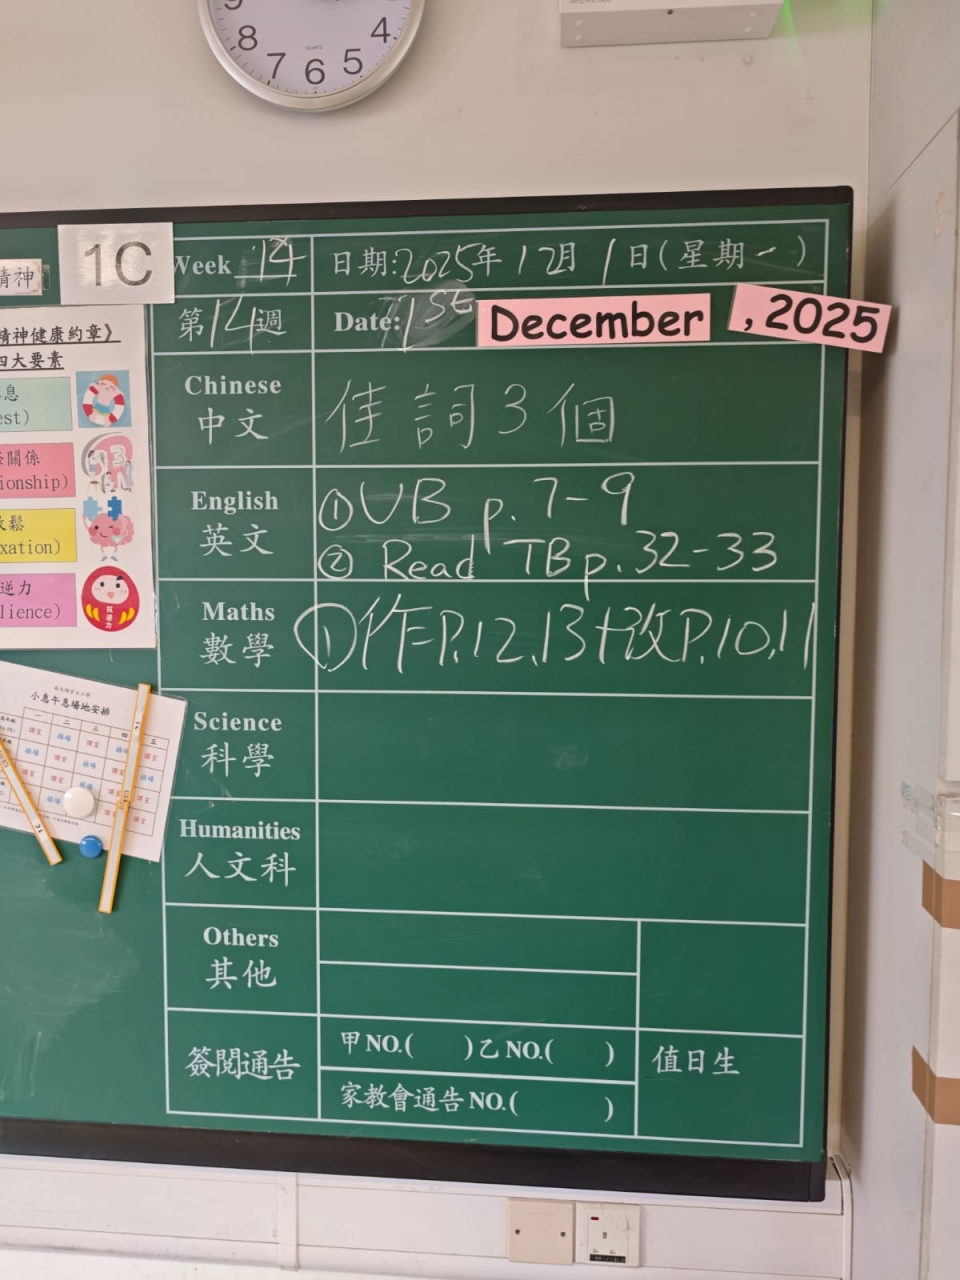 9
8
7
6
5
4
QUARTZ
精神
1C
Week 14
日期:2025年12月1日(星期一)
第14週
Date: 1st December, 2025
精神健康約章》
四大要素
息
est)
關係
ionship)
鬆
xation)
逆力
lience)
Chinese
中文
佳詞3個
English
英文
①UB p.7-9
② Read TB p.32-33
Maths
數學
①作P.12,13+改P.10,11
Science
科學
Humanities
人文科
Others
其他
簽閱通告
甲NO.( )乙NO.( )
家教會通告NO.( )
值日生
小息午息場地安排
一 二 三 四 五